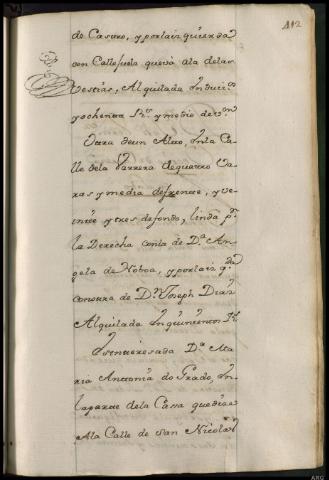 412
de Castro, y por la izquierda
con Callejuela que va a la de las
Bestias, Alquilada In Duci.os
y ochenta Rs. y medio de v.on
Otra de un Alto, In la Ca-
lle de la Barrera de quatro Va-
ras y media de frente, y ve-
inte y tres de fondo, linda p.r
la Derecha con la de D.a An-
gela de Noboa, y por la iz.da
con otra de D.n Joseph Diaz
Alquilada In quinientos Rs.
Interesada D.a Ma-
ria Anttonia do Prado, In
la parte de la Cassa que dice
A la Calle de San Nicolas